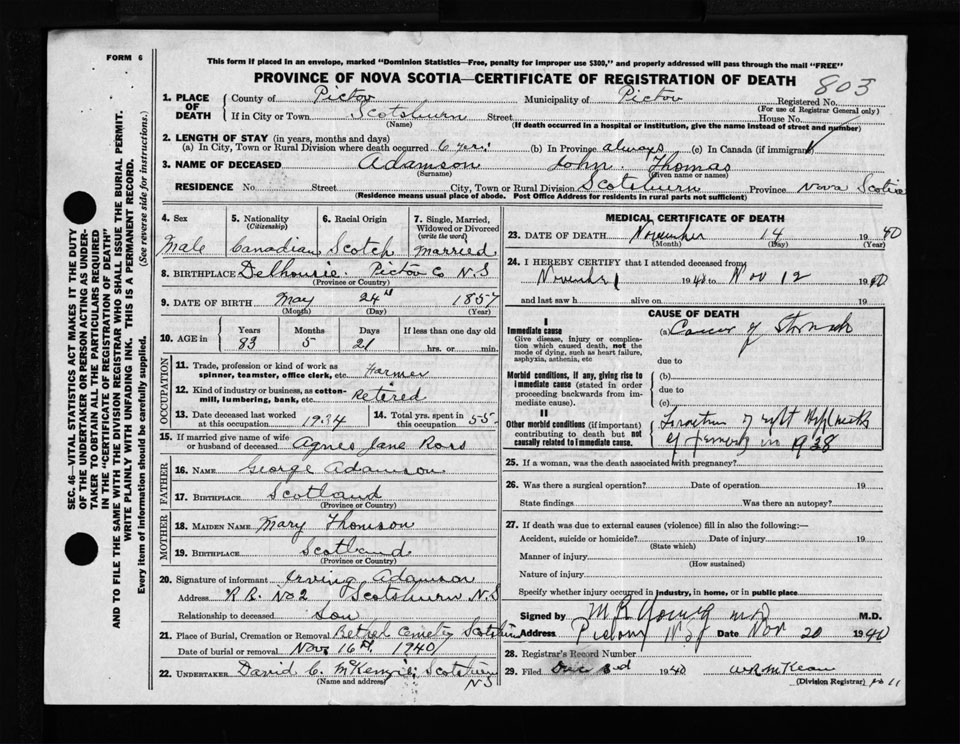 FORM 6
This form if placed in an envelope, marked "Dominion Statistics—Free, penalty for improper use $300," and properly addressed will pass through the mail "FREE"
PROVINCE OF NOVA SCOTIA—CERTIFICATE OF REGISTRATION OF DEATH
803
1. PLACE OF DEATH
County of Pictou Municipality of Pictou Registered No.
(For use of Registrar General only)
If in City or Town Scotsburn Street House No.
(Name) (If death occurred in a hospital or institution, give the name instead of street and number)
2. LENGTH OF STAY (in years, months and days)
(a) In City, Town or Rural Division where death occurred 6 yrs. (b) In Province always (c) In Canada (if immigrant)
3. NAME OF DECEASED Adamson John Thomas
(Surname) (Given name or names)
RESIDENCE No. Street City, Town or Rural Division Scotsburn Province Nova Scotia
(Residence means usual place of abode. Post Office Address for residents in rural parts not sufficient)
4. Sex
Male
5. Nationality (Citizenship)
Canadian
6. Racial Origin
Scotch
7. Single, Married, Widowed or Divorced (write the word)
Married
8. BIRTHPLACE Delhousie. Pictou Co N.S
(Province or Country)
9. DATE OF BIRTH May 24th 1857
(Month) (Day) (Year)
10. AGE in
Years Months Days If less than one day old
83 5 21 hrs. or min.
OCCUPATION
11. Trade, profession or kind of work as spinner, teamster, office clerk, etc. Farmer
12. Kind of industry or business, as cotton-mill, lumbering, bank, etc. Retired
13. Date deceased last worked at this occupation 1934
14. Total yrs. spent in this occupation 55
15. If married give name of wife or husband of deceased Agnes Jane Ross
FATHER
16. NAME George Adamson
17. BIRTHPLACE Scotland
(Province or Country)
MOTHER
18. MAIDEN NAME Mary Thomson
19. BIRTHPLACE Scotland
(Province or Country)
20. Signature of informant Irving Adamson
Address R.R. No 2 Scotsburn N.S
Relationship to deceased Son
21. Place of Burial, Cremation or Removal Bethel Cemetry Scotsburn
Date of burial or removal Nov. 16th, 1940
22. UNDERTAKER David C. McKenzie, Scotsburn
(Name and address) N.S
MEDICAL CERTIFICATE OF DEATH
23. DATE OF DEATH November 14 1940
(Month) (Day) (Year)
24. I HEREBY CERTIFY that I attended deceased from
November 1 1940 to Nov 12 1940
and last saw h alive on 19
CAUSE OF DEATH
I
Immediate cause
Give disease, injury or complication which caused death, not the mode of dying, such as heart failure, asphyxia, asthenia, etc
(a) Cancer of Stomach
due to
Morbid conditions, if any, giving rise to immediate cause (stated in order proceeding backwards from immediate cause).
(b)
due to
(c)
II
Other morbid conditions (if important) contributing to death but not causally related to immediate cause.
of in 1938
25. If a woman, was the death associated with pregnancy?
26. Was there a surgical operation? Date of operation 19
State findings Was there an autopsy?
27. If death was due to external causes (violence) fill in also the following:—
Accident, suicide or homicide? Date of injury 19
(State which)
Manner of injury
(How sustained)
Nature of injury
Specify whether injury occurred in industry, in home, or in public place
Signed by M R Young M.D. M.D.
Address Pictou N.S Date Nov 20 1940
28. Registrar's Record Number
29. Filed Dec 3rd 1940 W.R. McKean
(Division Registrar) No 11
SEC. 46—VITAL STATISTICS ACT MAKES IT THE DUTY
OF THE UNDERTAKER OR PERSON ACTING AS UNDER-
TAKER TO OBTAIN ALL THE PARTICULARS REQUIRED
IN THE "CERTIFICATE OF REGISTRATION OF DEATH"
AND TO FILE THE SAME WITH THE DIVISION REGISTRAR WHO SHALL ISSUE THE BURIAL PERMIT.
WRITE PLAINLY WITH UNFADING INK. THIS IS A PERMANENT RECORD.
Every item of information should be carefully supplied. (See reverse side for instructions.)